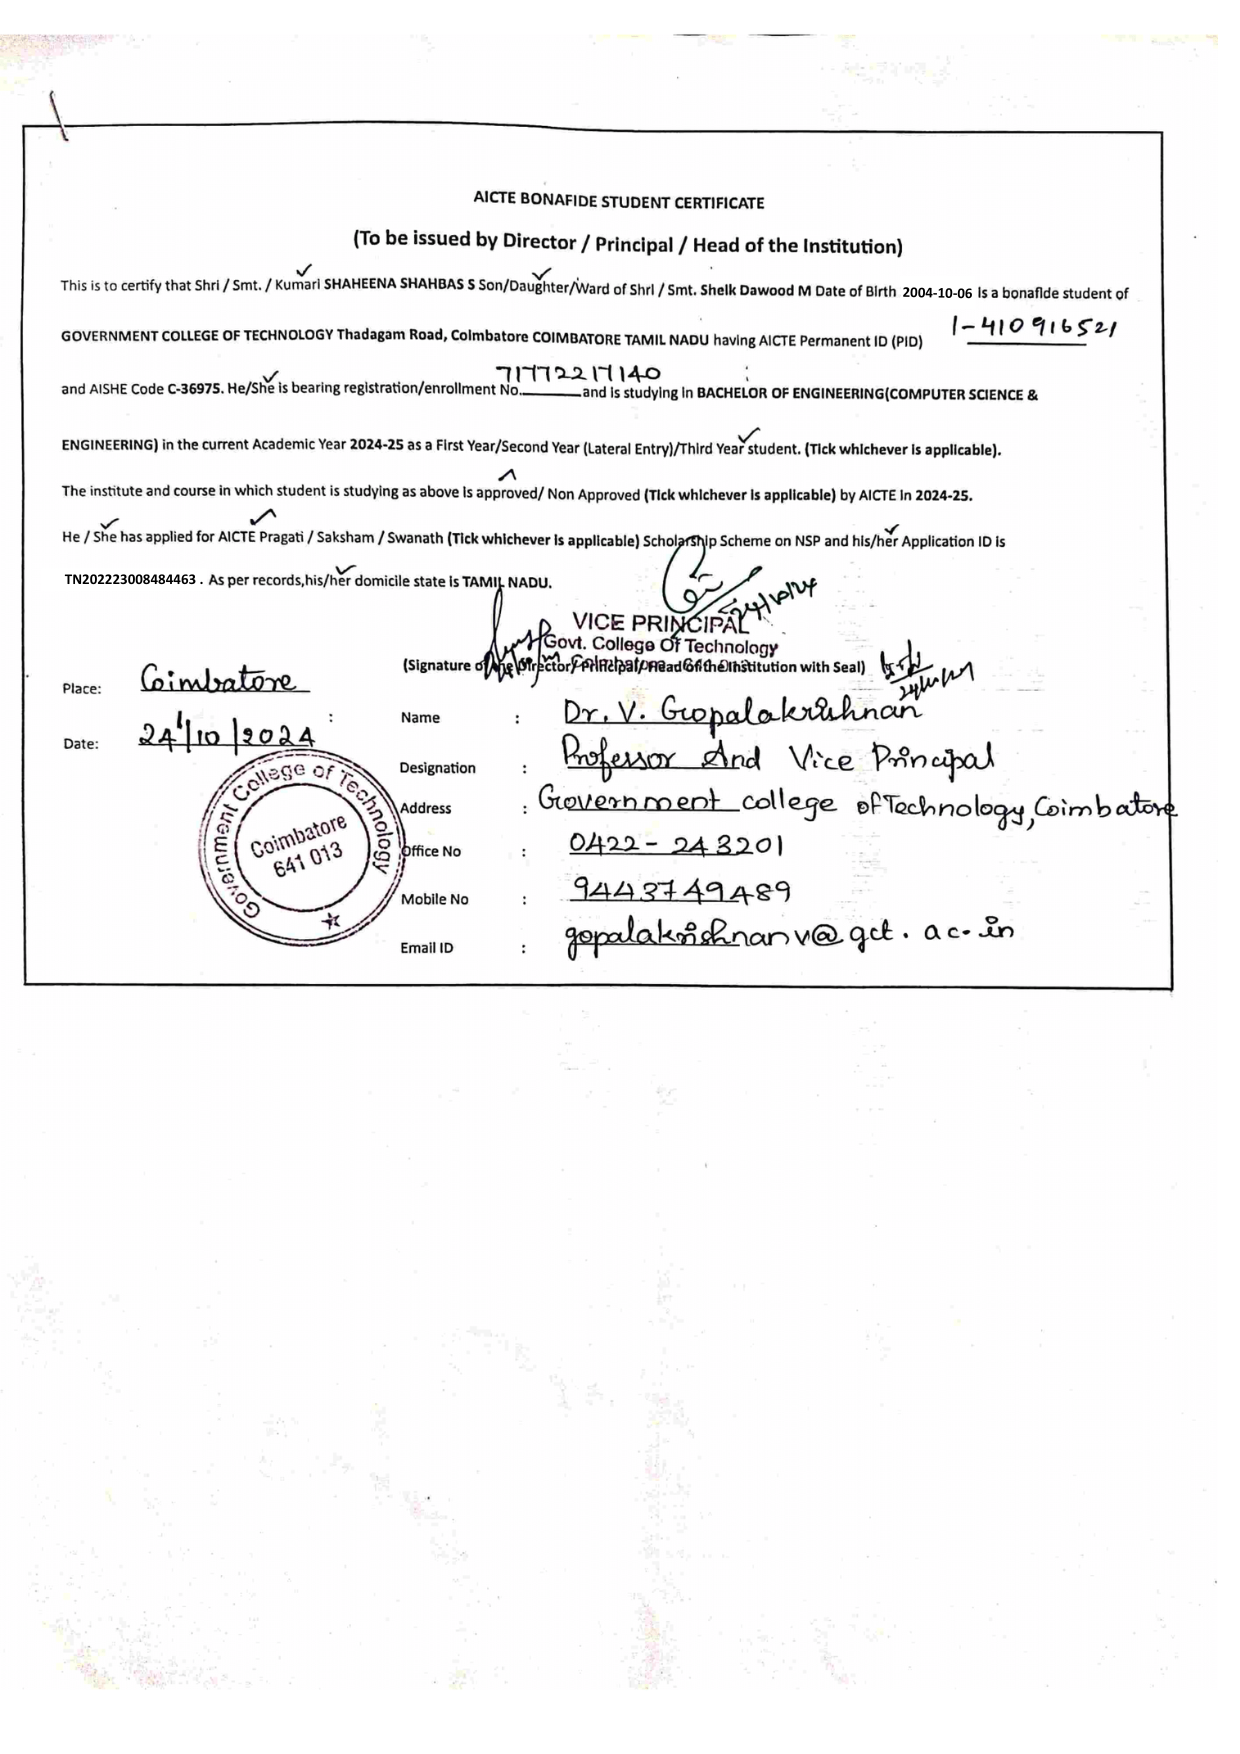 AICTE BONAFIDE STUDENT CERTIFICATE
(To be issued by Director / Principal / Head of the Institution)
This is to certify that Shri / Smt. / Kumari SHAHEENA SHAHBAS S Son/Daughter/Ward of Shri / Smt. Sheik Dawood M Date of Birth 2004-10-06 is a bonafide student of
GOVERNMENT COLLEGE OF TECHNOLOGY Thadagam Road, Coimbatore COIMBATORE TAMIL NADU having AICTE Permanent ID (PID) 1-410916521
and AISHE Code C-36975. He/She is bearing registration/enrollment No. 71772217140 and is studying in BACHELOR OF ENGINEERING(COMPUTER SCIENCE &
ENGINEERING) in the current Academic Year 2024-25 as a First Year/Second Year (Lateral Entry)/Third Year student. (Tick whichever is applicable).
The institute and course in which student is studying as above is approved/ Non Approved (Tick whichever is applicable) by AICTE in 2024-25.
He / She has applied for AICTE Pragati / Saksham / Swanath (Tick whichever is applicable) Scholarship Scheme on NSP and his/her Application ID is
TN202223008484463 . As per records,his/her domicile state is TAMIL NADU.
24/10/24
VICE PRINCIPAL
Govt. College Of Technology
(Signature of the Director/ Principal/ Head of the Institution with Seal)
Place: Coimbatore
Name : Dr. V. Gopalakrishnan
Date: 24/10/2024
Designation : Professor And Vice Principal
Address : Government college of Technology, Coimbatore
Office No : 0422-243201
Mobile No : 9443749489
Email ID : gopalakrishnanv@gct.ac.in
Government College of Technology
Coimbatore
641 013